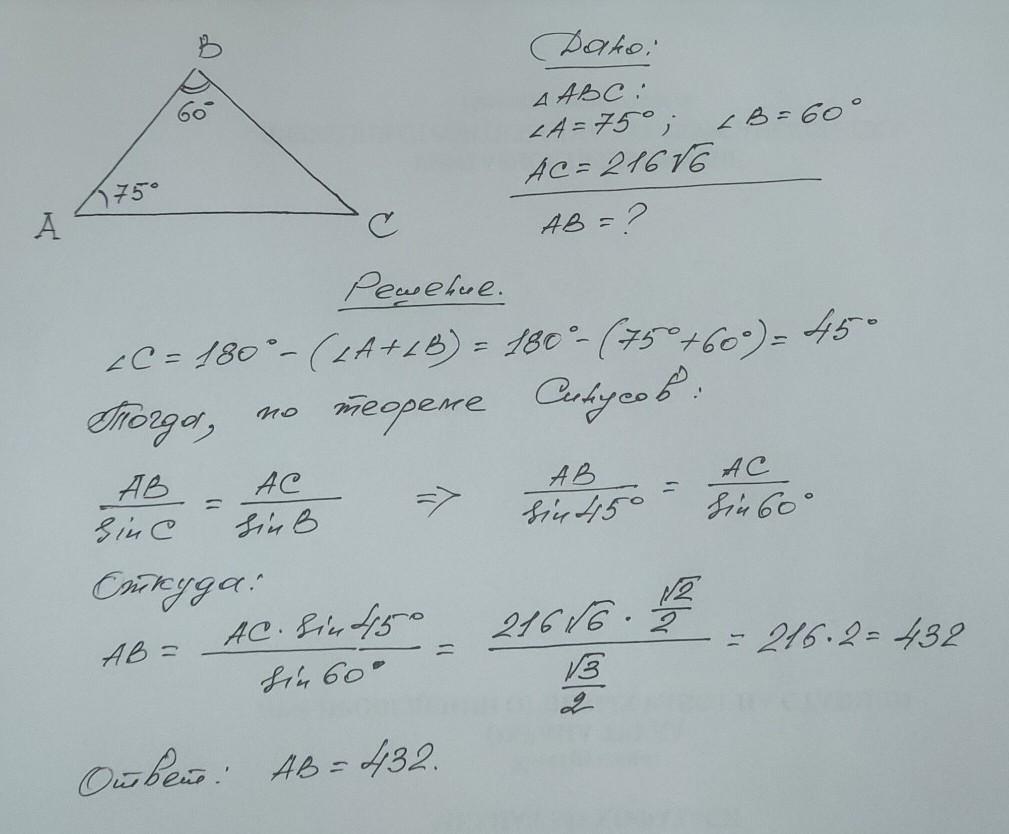 B
60°
75°
A
C
Дано:
△ABC:
∠A = 75°; ∠B = 60°
AC = 216√6
AB = ?
Решение.
∠C = 180° - (∠A + ∠B) = 180° - (75° + 60°) = 45°
Тогда, по теореме Синусов:
AB/sin C = AC/sin B => AB/sin 45° = AC/sin 60°
Откуда:
AB = AC · sin 45°/sin 60° = (216√6 · √2/2)/(√3/2) = 216·2 = 432
Ответ: AB = 432.